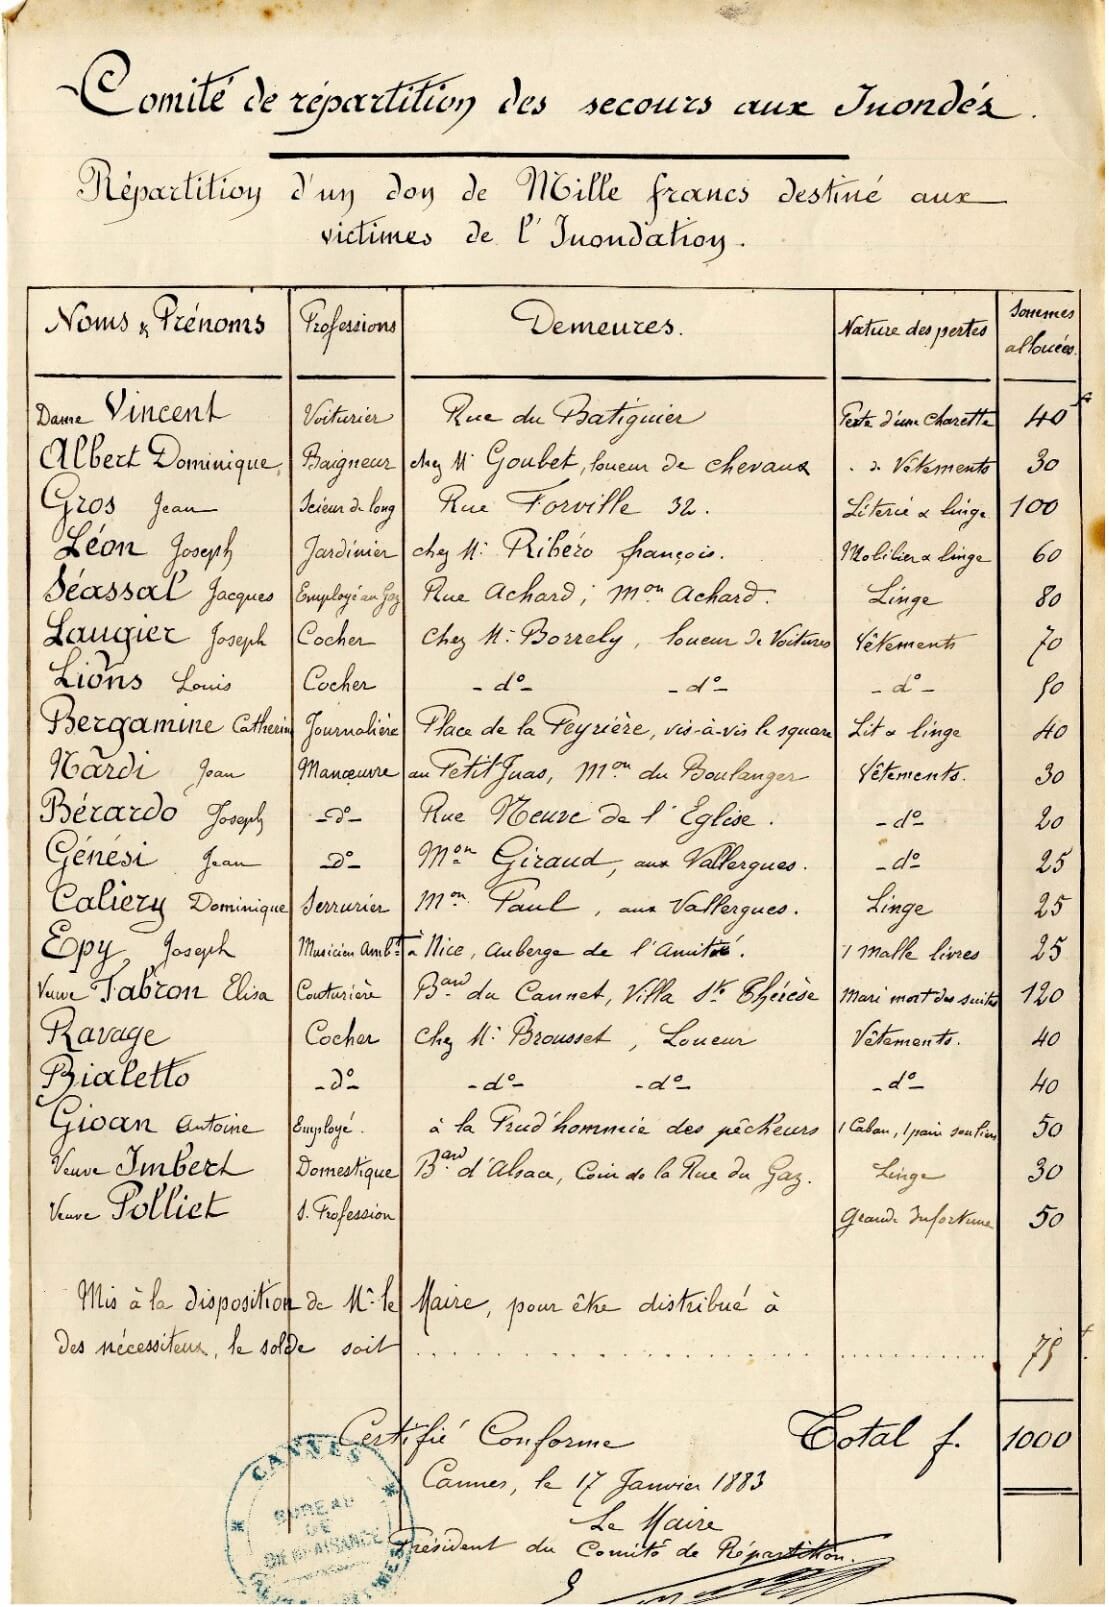 Comité de répartition des secours aux Inondés.
Répartition d'un don de Mille francs destiné aux
victimes de l'Inondation.
Noms & Prénoms Professions Demeures. Nature des pertes Sommes allouées.
Dame Vincent Voiturier Rue du Batiguier Perte d'une charette 40 f
Albert Dominique, Baigneur chez Mr Goubet, loueur de chevaux - do Vêtements 30
Gros Jean Scieur de long Rue Forville 32. Literie & linge 100
Léon Joseph Jardinier chez Mr Ribéro françois. Mobilier & linge 60
Séassal Jacques Employé au Gaz Rue Achard, mon Achard. Linge 80
Laugier Joseph Cocher chez Mr Borrely, loueur de Voitures Vêtements 70
Lions Louis Cocher - do - - do - - do - 50
Bergamine Catherine Journalière Place de la Peyrière, vis-à-vis le square Lit & linge 40
Nardi Jean Manœuvre au Petit Juas, Mon du Boulanger Vêtements. 30
Bérardo Joseph - do - Rue Neuve de l'Eglise. - do - 20
Génési Jean - do - Mon Giraud, aux Vallergues. - do - 25
Caliery Dominique Serrurier Mon Paul, aux Vallergues. Linge 25
Epy, Joseph Musicien Ambt à Nice, auberge de l'Amitié. 1 malle livres 25
Veuve Fabron Elisa Couturière Bard du Cannet, Villa Ste Thérèse Mari mort des suites 120
Ravage Cocher chez Mr Brousset, Loueur Vêtements. 40
Bialetto - do - - do - - do - - do - 40
Gioan Antoine Employé. à la Prud'hommie des pêcheurs 1 Caban, 1 pair souliers 50
Veuve Imbert Domestique Bard d'Alsace, Coin de la Rue du Gaz. Linge 30
Veuve Polliet S. Profession Grande Infortune 50
Mis à la disposition de Mr le Maire, pour être distribué à
des nécessiteux, le solde soit 75 f
Certifié Conforme Total f. 1000
Cannes, le 17 Janvier 1883
Le Maire
Président du Comité de Répartition.
CANNES
BUREAU
DE
BIENFAISANCE